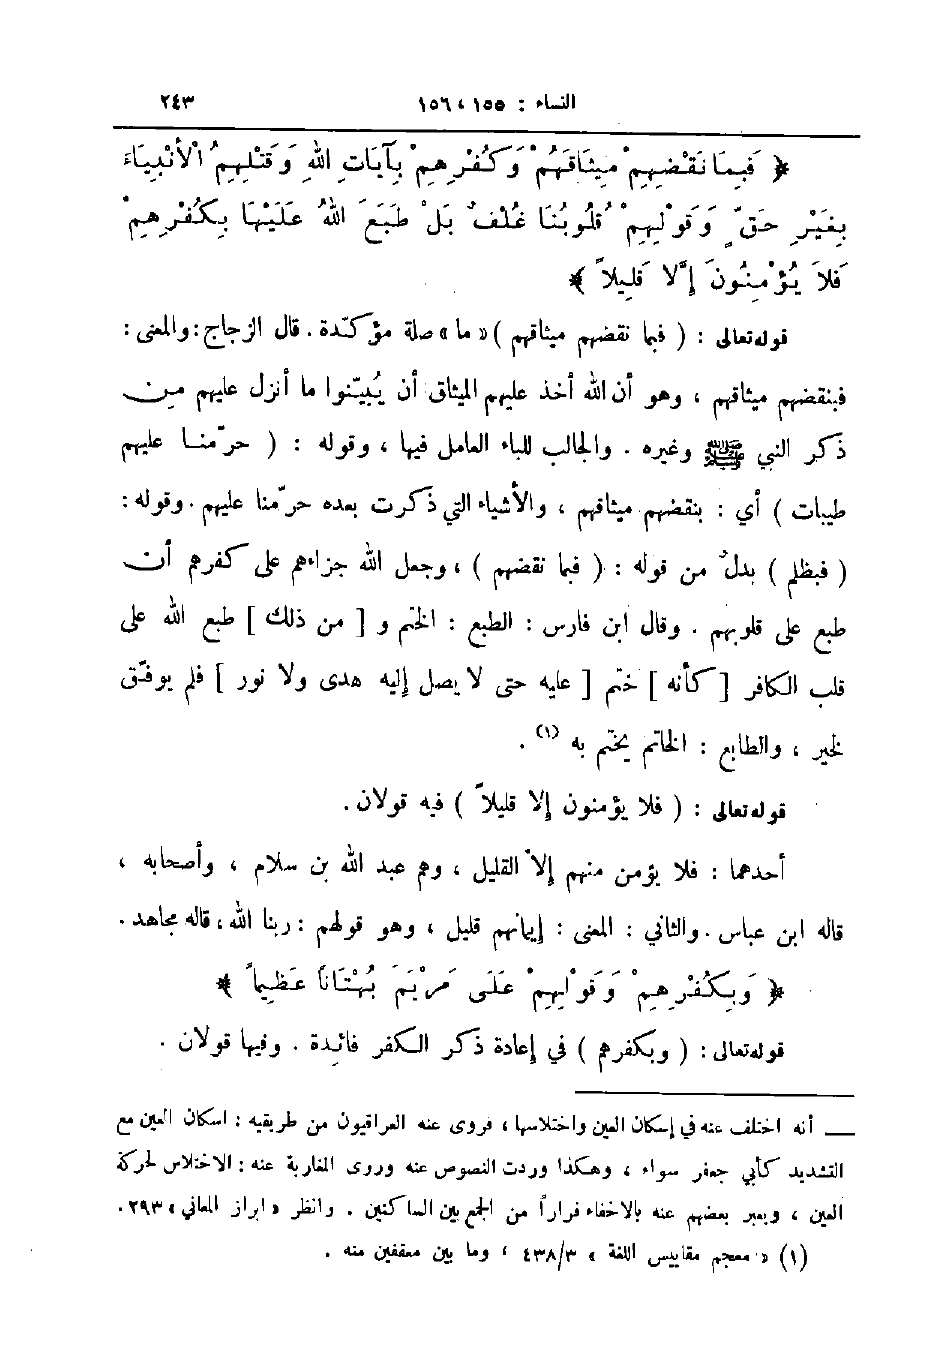 النساء : ١٥٥ ، ١٥٦ ٢٤٣
﴿ فَبِمَا نَقْضِهِمْ مِيثَاقَهُمْ وَكُفْرِهِمْ بِآيَاتِ اللهِ وَقَتْلِهِمُ الْأَنْبِيَاءَ
بِغَيْرِ حَقٍّ وَقَوْلِهِمْ قُلُوبُنَا غُلْفٌ بَلْ طَبَعَ اللهُ عَلَيْهَا بِكُفْرِهِمْ
فَلَا يُؤْمِنُونَ إِلَّا قَلِيلاً ﴾
قوله تعالى : ( فبما نقضهم ميثاقهم ) « ما » صلة مؤكّدة . قال الزجاج : والمعنى :
فبنقضهم ميثاقهم ، وهو أن الله أخذ عليهم الميثاق أن يُبيّنوا ما أنزل عليهم من
ذكر النبي ﷺ وغيره . والجالب للباء العامل فيها ، وقوله : ( حرّمنا عليهم
طيبات ) أي : بنقضهم ميثاقهم ، والأشياء التي ذكرت بعده حرّمنا عليهم . وقوله :
( فبظلم ) بدلٌ من قوله : ( فبما نقضهم ) ، وجعل الله جزاءهم على كفرهم أن
طبع على قلوبهم . وقال ابن فارس : الطبع : الختم و [ من ذلك ] طبع الله على
قلب الكافر [ كأنه ] ختم [ عليه حتى لا يصل إليه هدى ولا نور ] فلم يوفّق
لخير ، والطابع : الخاتم يختم به (١) .
قوله تعالى : ( فلا يؤمنون إلا قليلاً ) فيه قولان .
أحدهما : فلا يؤمن منهم إلا القليل ، وهم عبد الله بن سلام ، وأصحابه ،
قاله ابن عباس . والثاني : المعنى : إيمانهم قليل ، وهو قولهم : ربنا الله ، قاله مجاهد .
﴿ وَبِكُفْرِهِمْ وَقَوْلِهِمْ عَلَى مَرْيَمَ بُهْتَانًا عَظِيماً ﴾
قوله تعالى : ( وبكفرهم ) في إعادة ذكر الكفر فائدة . وفيها قولان .
ــ أنه اختلف عنه في إسكان العين واختلاسها ، فروى عنه العراقيون من طريقيه : اسكان العين مع
التشديد كأبي جعفر سواء ، وهكذا وردت النصوص عنه وروى المغاربة عنه : الاختلاس لحركة
العين ، ويعبر بعضهم عنه بالاخفاء فراراً من الجمع بين الساكنين . وانظر « ابراز المعاني » ٢٩٣ .
(١) « معجم مقاييس اللغة » ٤٣٨/٣ ، وما بين معقفين منه .